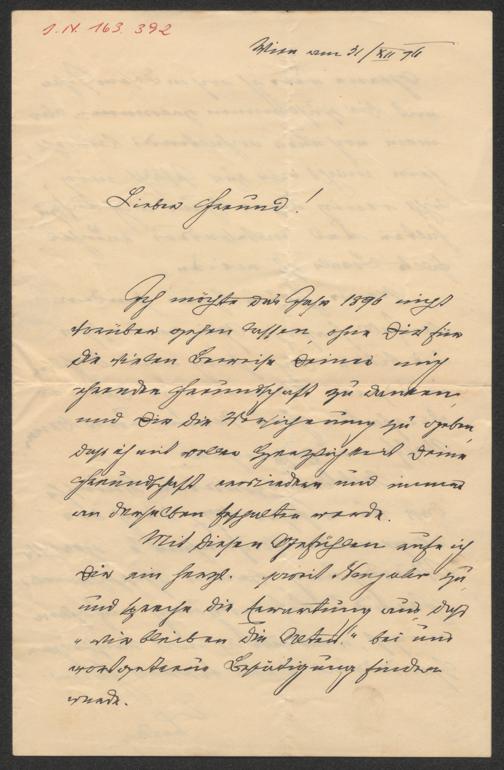 I.N. 163.392
Wien am 31/XII 96
Lieber Freund!
Ich möchte das Jahr 1896 nicht
vorüber gehen lassen, ohne Dir für
die vielen Beweise Deiner mich
ehrenden Freundschaft zu danken,
und Dir die Versicherung zu geben,
daß ich mit voller Herzlichkeit Deine
Freundschaft erwiedere und immer
an derselben festhalten werde.
Mit diesen Gefühlen rufe ich
Dir ein herzl. prosit Neujahr zu,
und spreche die Erwartung aus, daß
"wir bleiben die Alten." bei uns
wortgetreue Bestätigung finden
werde.